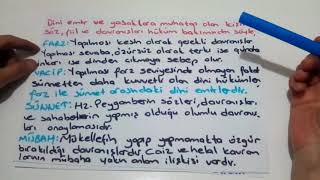 Dini emir ve yasaklara muhatap olan kişinin
söz, fiil ve davranışları hüküm bakımından şöyle
FARZ: Yapılması kesin olarak gerekli davranışlar.
Yapılması sevaba, özürsüz olarak terki ise günaha
inkarı ise dinden çıkmaya sebep olur.
VACİP: Yapılması farz seviyesinde olmayan fakat
sünnetten daha kuvvetli olan dini hükümler.
farz ile sünnet arasındaki dini emirlerdir.
SÜNNET: Hz. Peygamberin sözleri, davranışları
ve sahabelerin yapmış olduğu olumlu davranış
ları onaylamasıdır.
MÜBAH: Mükellefin yapıp yapmamakta özgür
bırakıldığı davranışlardır. Caiz ve helal kavram
larının mübahla yakın anlam ilişkisi vardır.